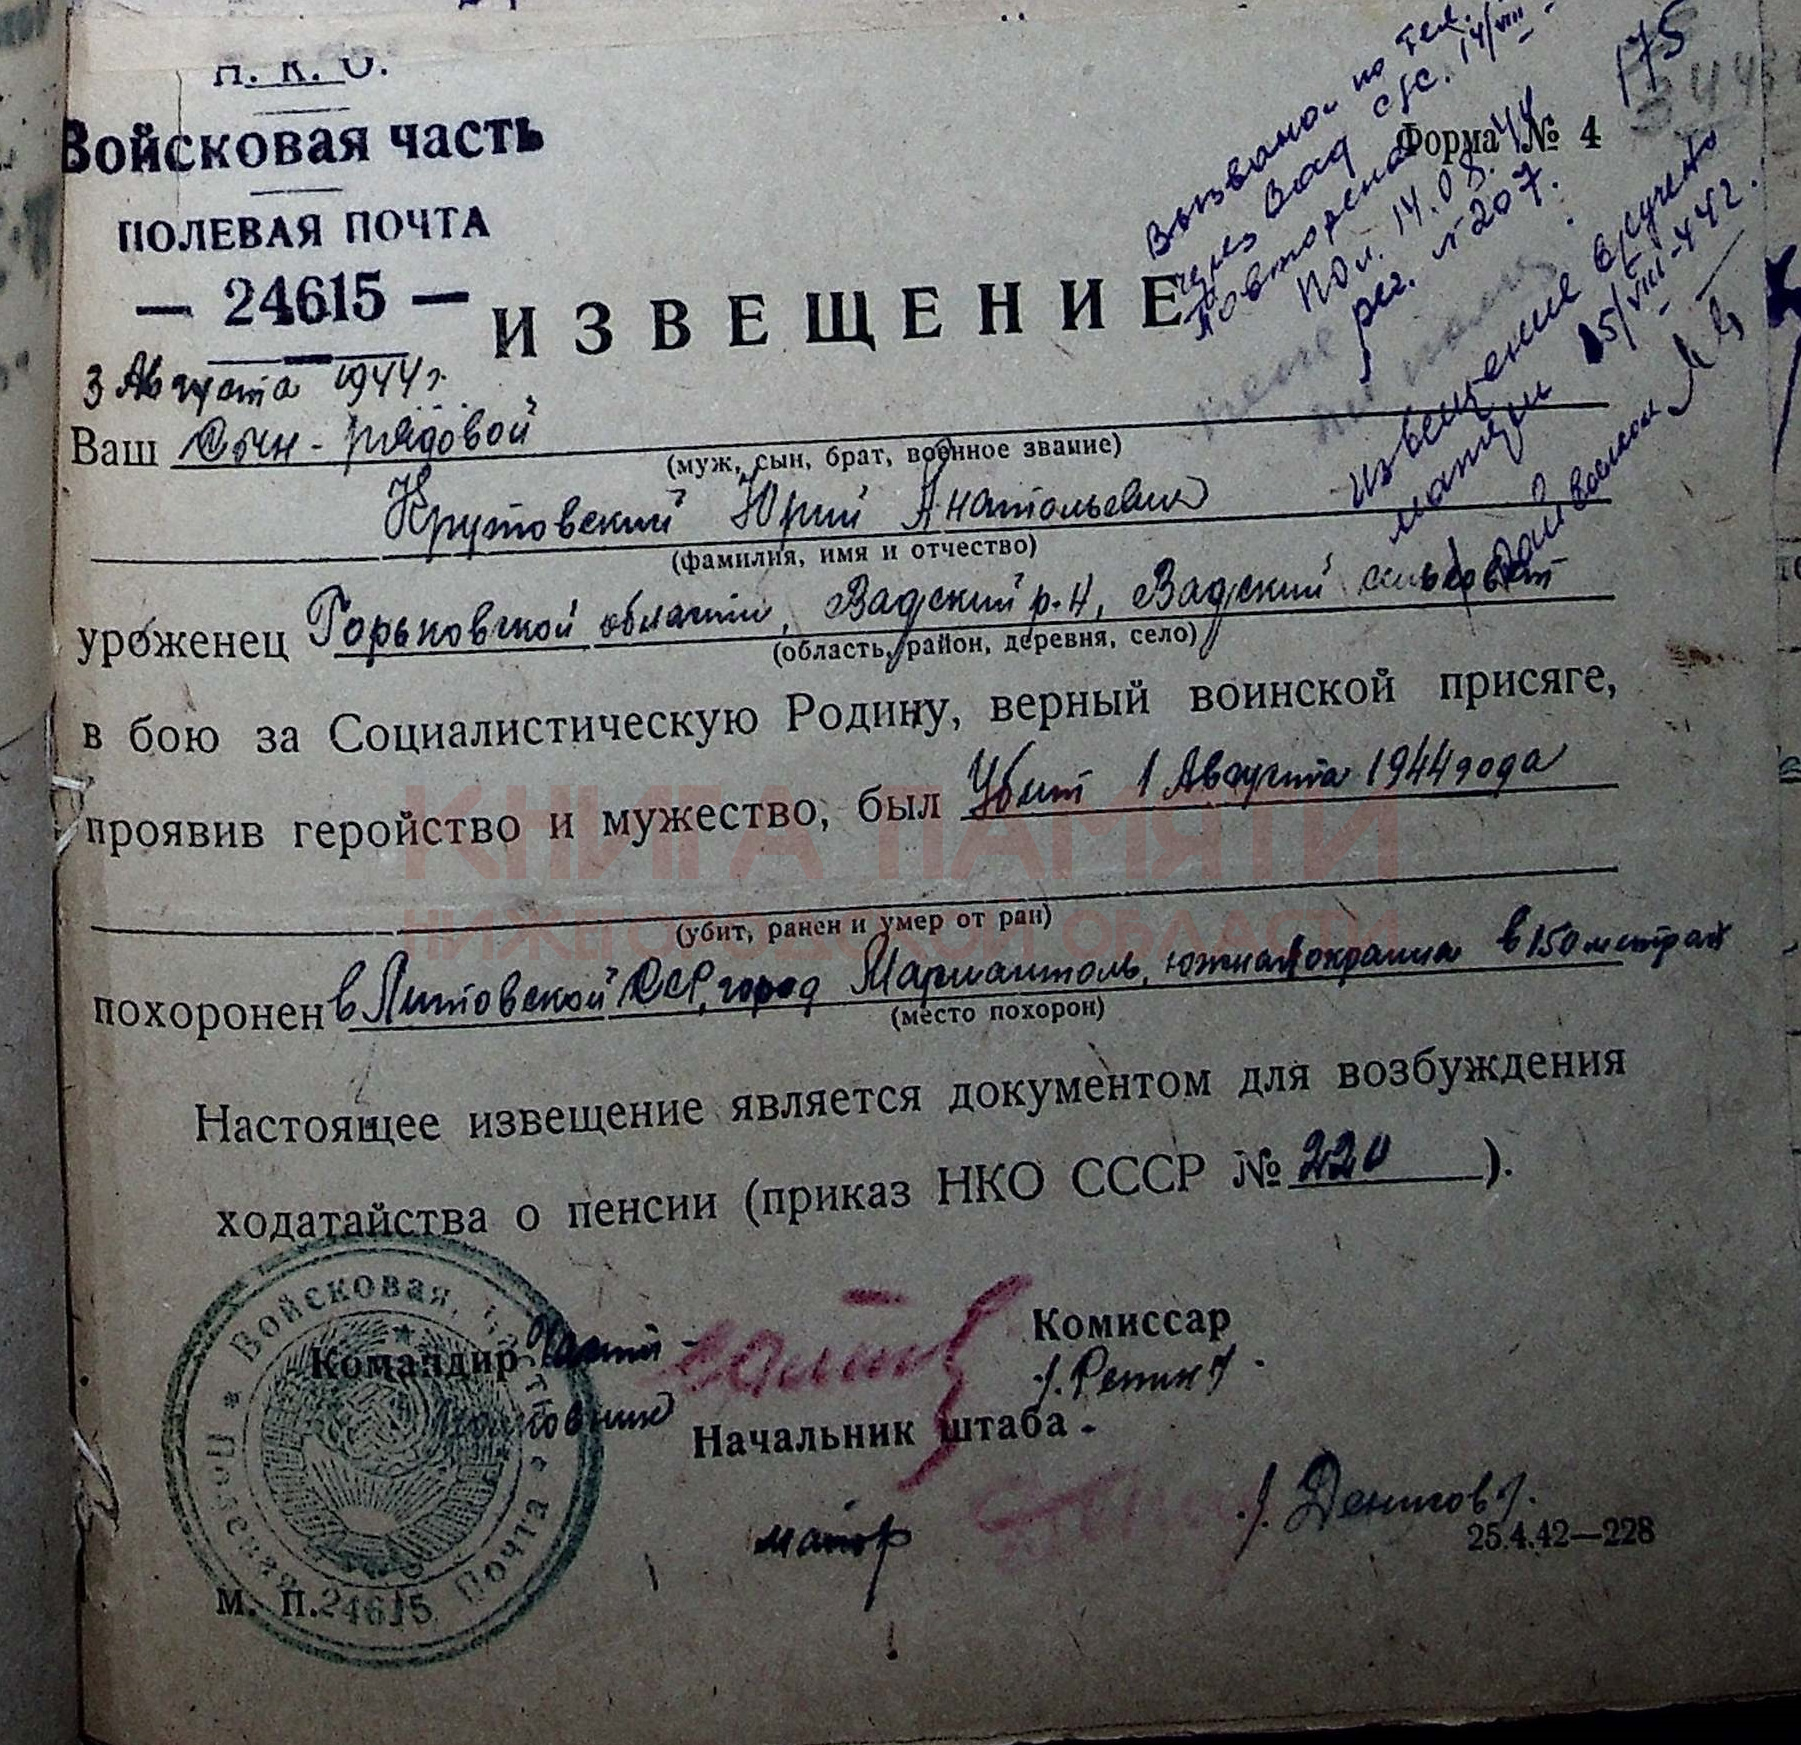 Н. К. О.
Войсковая часть
ПОЛЕВАЯ ПОЧТА
— 24615 —
3 Августа 1944 г.
Форма № 4
175
Вызвана по тел.
через Вад с/с. 14/VIII
Повторена
14.08.44
рег. № 207.
ИЗВЕЩЕНИЕ
Извещение вручено
матери 15/VIII-44 г.
Ваш Сын - рядовой
(муж, сын, брат, военное звание)
Крутовский Юрий Анатольевич
(фамилия, имя и отчество)
уроженец Горьковской области, Вадский р-н, Вадский сельсовет
(область, район, деревня, село)
в бою за Социалистическую Родину, верный воинской присяге,
проявив геройство и мужество, был Убит 1 Августа 1944 года
КНИГА ПАМЯТИ
НИЖЕГОРОДСКОЙ ОБЛАСТИ
(убит, ранен и умер от ран)
похоронен в Литовской ССР, город Мариамполь, южная окраина в 150 метрах
(место похорон)
Настоящее извещение является документом для возбуждения
ходатайства о пенсии (приказ НКО СССР № 220 ).
Командир части -
Полковник
Комиссар
/. Репин /.
Начальник штаба -
майор
/. Денисов /.
25.4.42—228
М. П.
Войсковая часть
Полевая Почта
24615